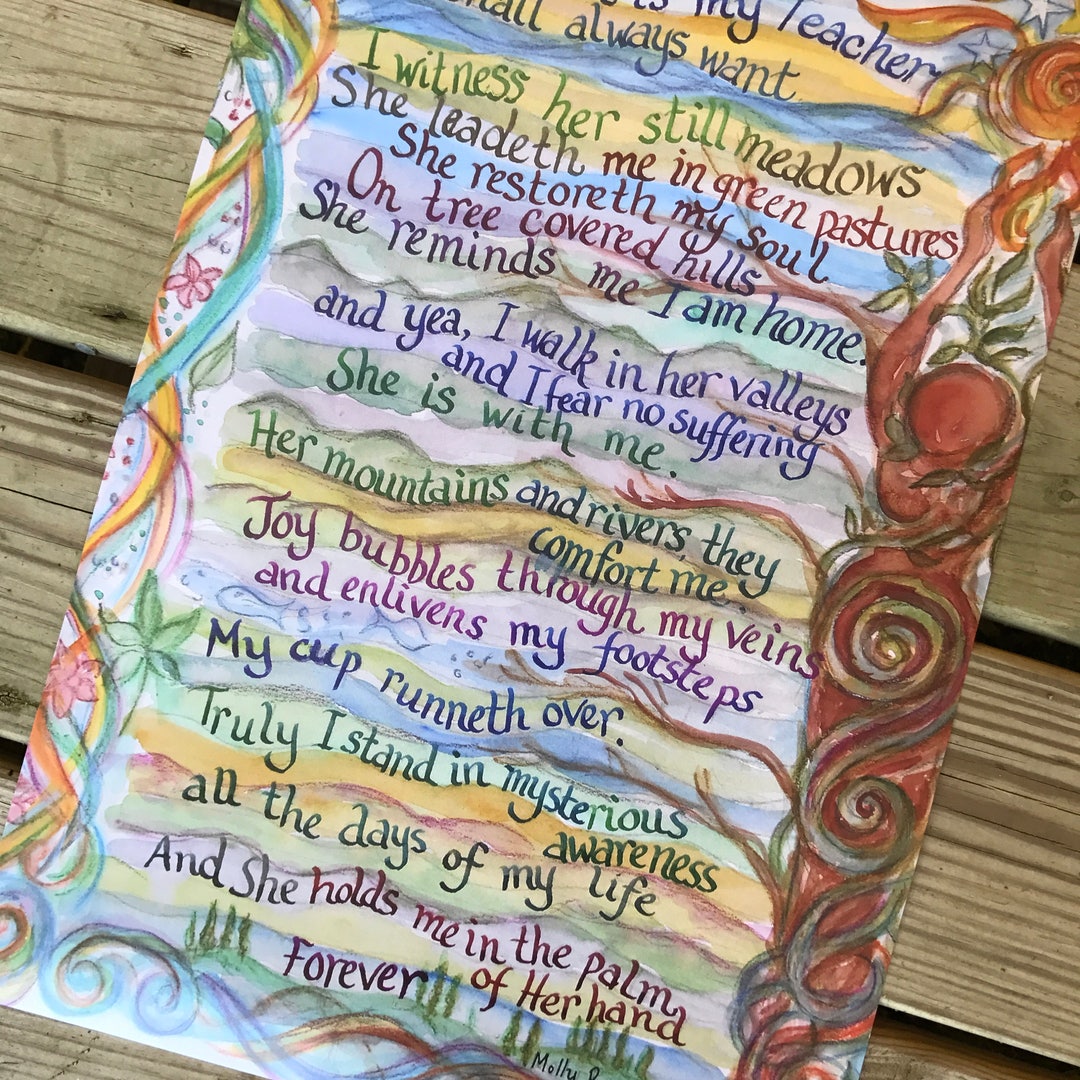 is my Teacher
shall always want
I witness her still meadows
She leadeth me in green pastures
She restoreth my soul
On tree covered hills
She reminds me I am home.
and yea, I walk in her valleys
and I fear no suffering
She is with me.
Her mountains and rivers they
comfort me.
Joy bubbles through my veins
and enlivens my footsteps
My cup runneth over.
Truly I stand in mysterious
awareness
all the days of my life
And She holds me in the palm
of Her hand
Forever
Molly